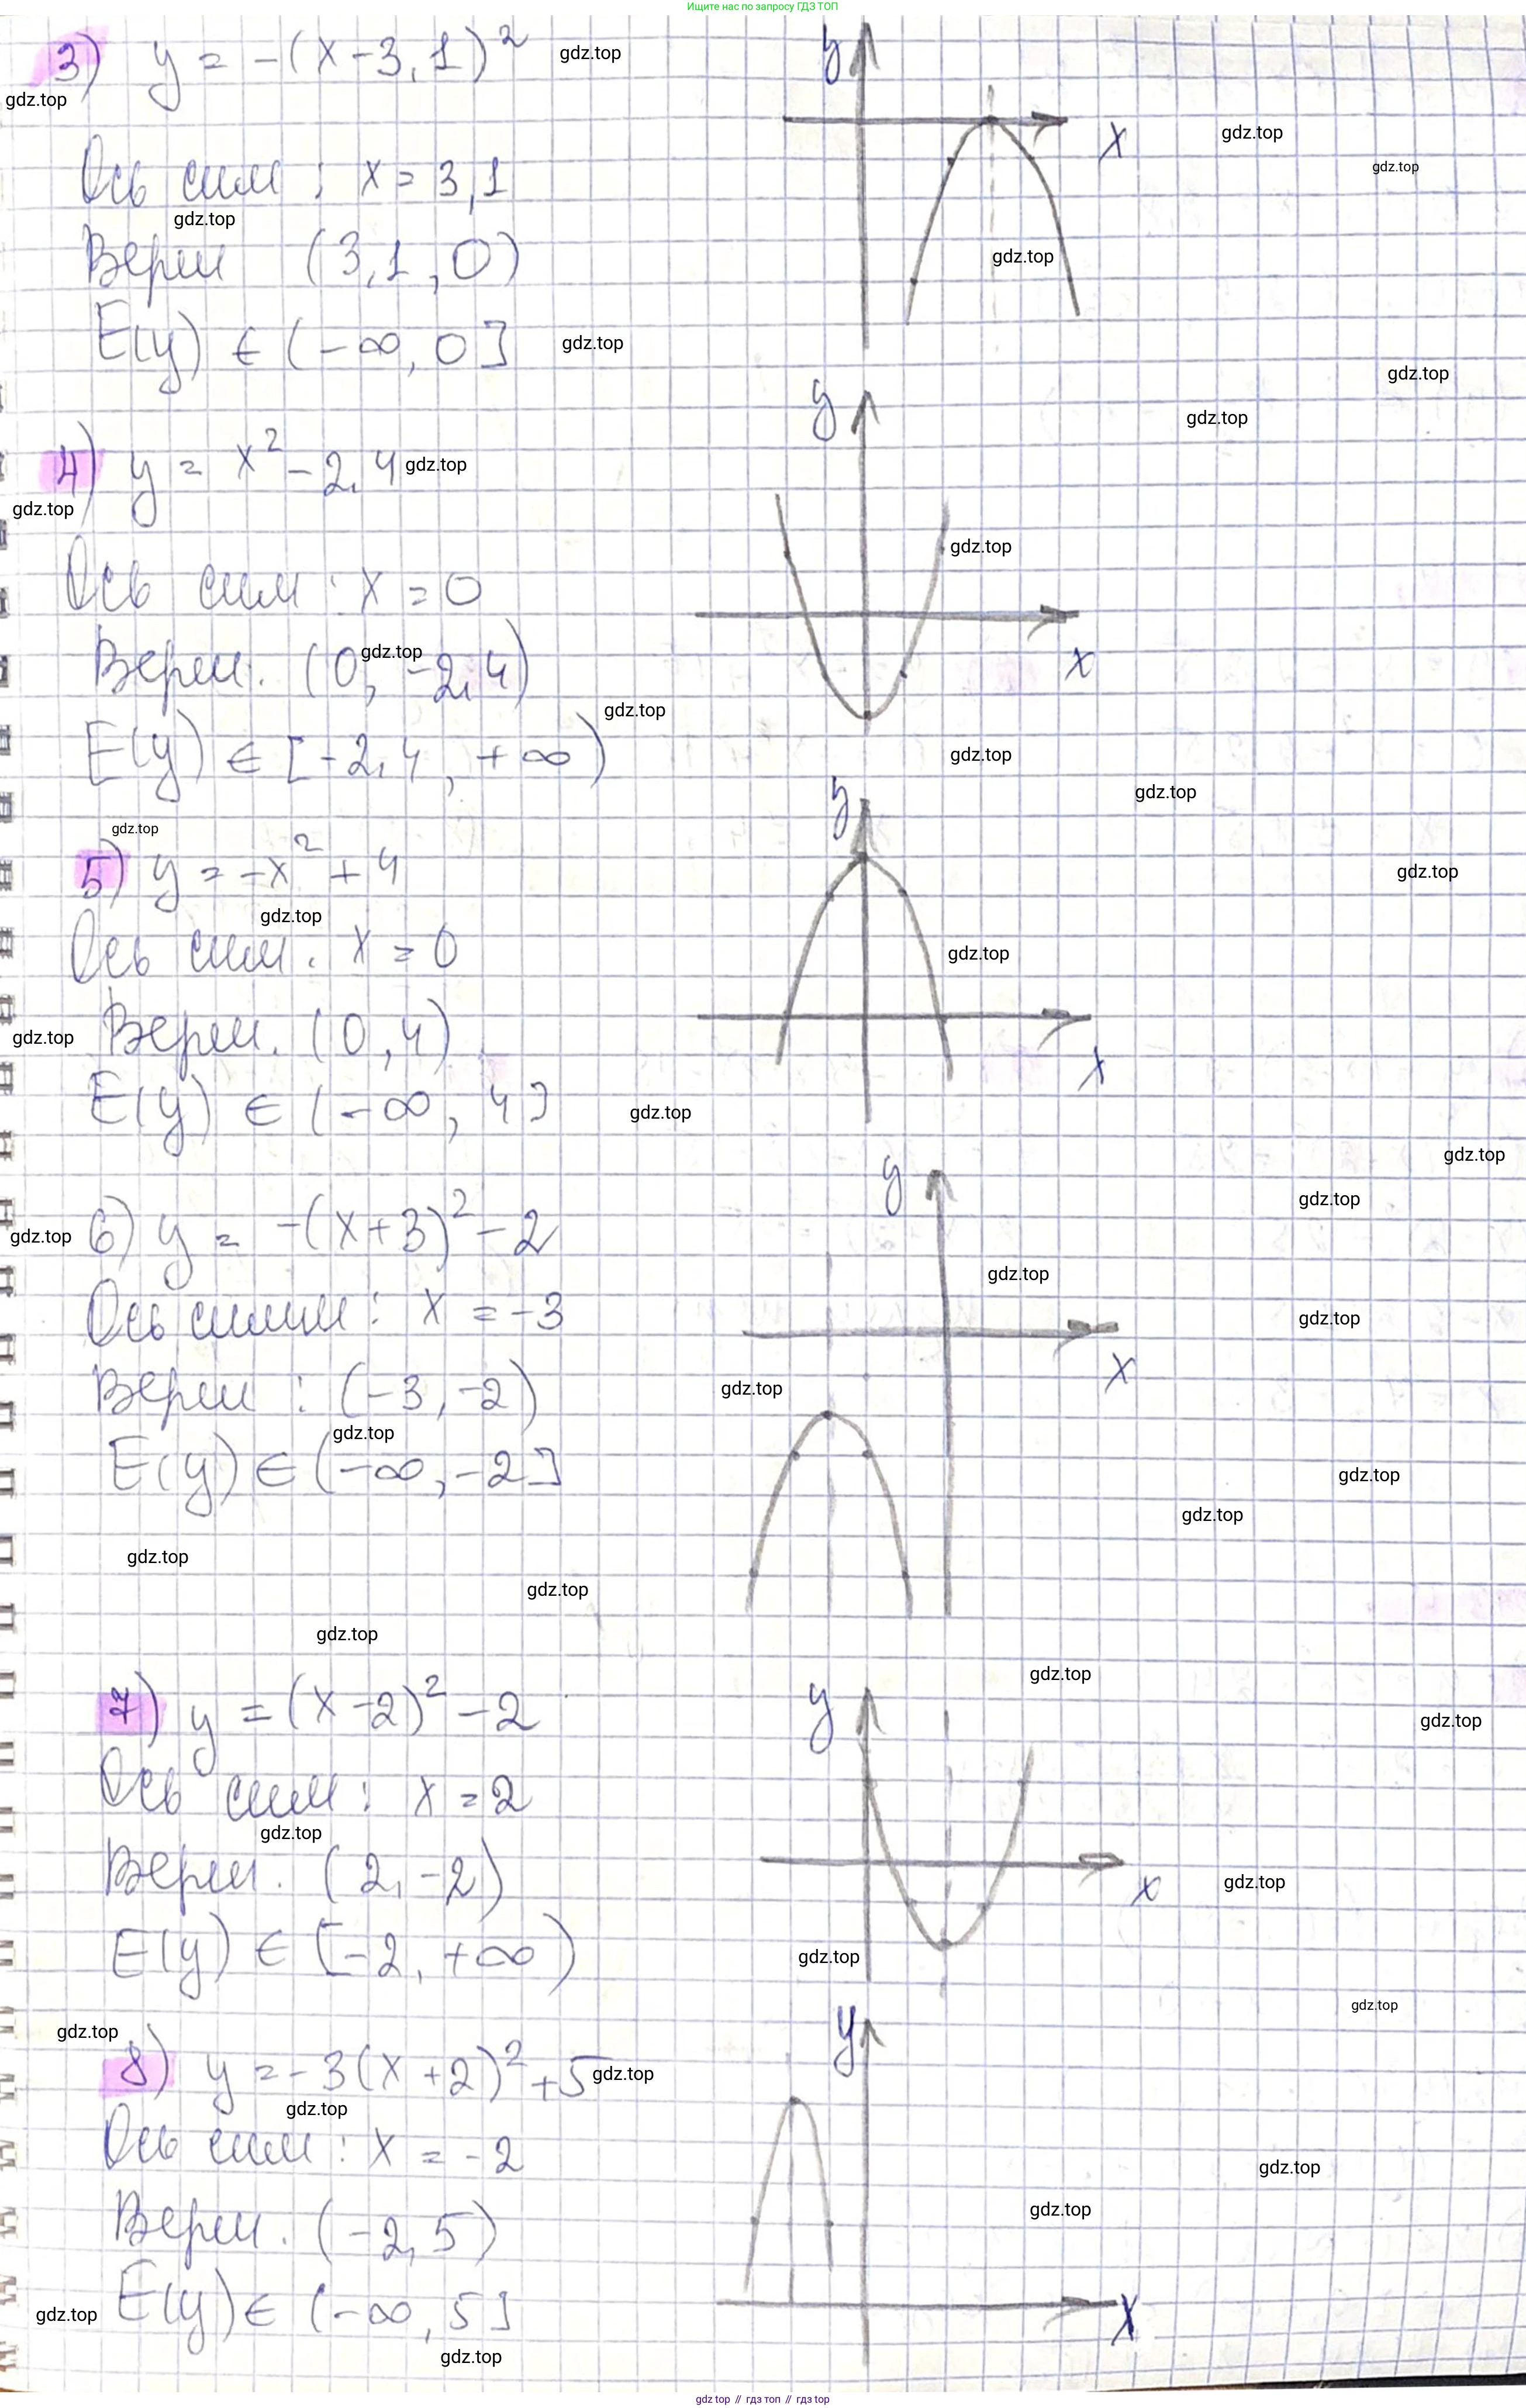 Ищите нас по запросу ГДЗ ТОП
3) y = -(x-3,1)² gdz.top
y
gdz.top
x
gdz.top
gdz.top
Ось сим : x = 3,1
gdz.top
Верш (3,1, 0)
gdz.top
E(y) ∈ (-∞, 0] gdz.top
gdz.top
y
gdz.top
4) y = x² - 2,4 gdz.top
gdz.top
gdz.top
Ось сим : x = 0
Верш. (0, -2,4)
gdz.top
x
gdz.top
E(y) ∈ [-2,4, +∞)
gdz.top
y
gdz.top
gdz.top
5) y = -x² + 4
gdz.top
gdz.top
Ось сим. x = 0
gdz.top
gdz.top
Верш. (0, 4)
x
E(y) ∈ (-∞, 4]
gdz.top
gdz.top
y
gdz.top
gdz.top
6) y = -(x+3)² - 2
gdz.top
Ось симм : x = -3
gdz.top
x
Верш : (-3, -2)
gdz.top
gdz.top
E(y) ∈ (-∞, -2]
gdz.top
gdz.top
gdz.top
gdz.top
gdz.top
gdz.top
7) y = (x-2)² - 2
y
gdz.top
Ось сим : x = 2
gdz.top
Верш. (2, -2)
x
gdz.top
E(y) ∈ [-2, +∞)
gdz.top
gdz.top
gdz.top
y
8) y = -3(x+2)² + 5 gdz.top
gdz.top
Ось сим : x = -2
gdz.top
gdz.top
Верш. (-2, 5)
E(y) ∈ (-∞, 5]
gdz.top
x
gdz.top
gdz.top // гдз топ // гдз top